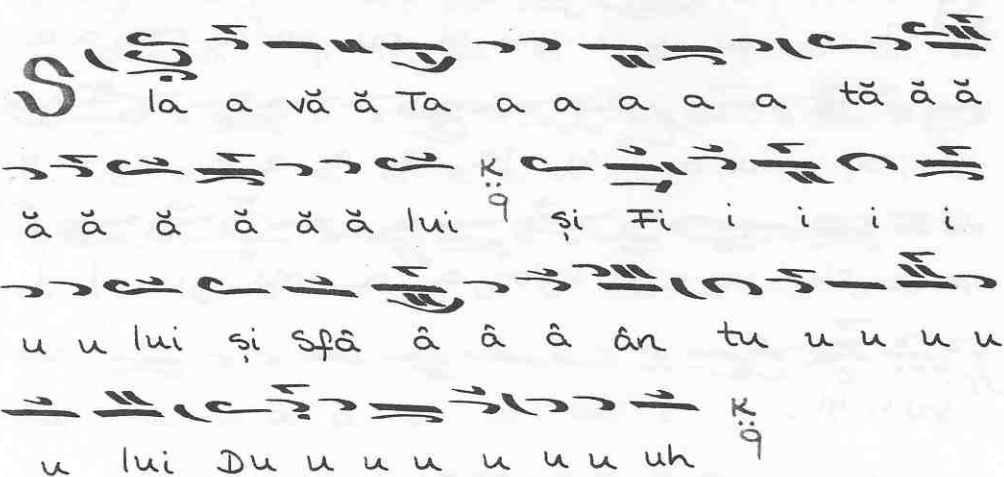 Sla a vă ă Ta a a a a a tă ă ă
ă ă ă ă ă ă lui și Fi i i i i
u u lui și Sfâ â â â ân tu u u u u
u lui Du u u u u u u uh